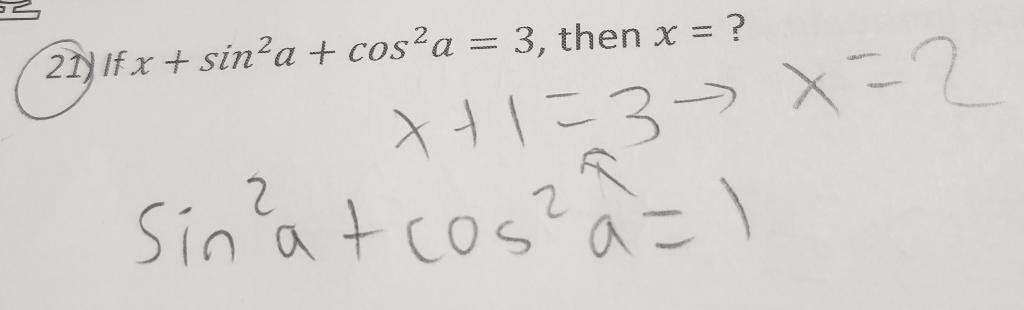 21) If x + sin²a + cos²a = 3, then x = ?
x + 1 = 3 → x = 2
sin²a + cos²a = 1